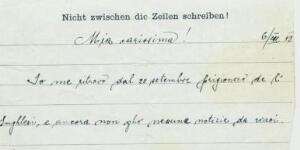 Nicht zwischen die Zeilen schreiben!
Mia carissima! 6/III
Io me ritrovo dal 20 setembre prigioniero de l'
Inghlesi, e ancora non gho nesuna notizie da